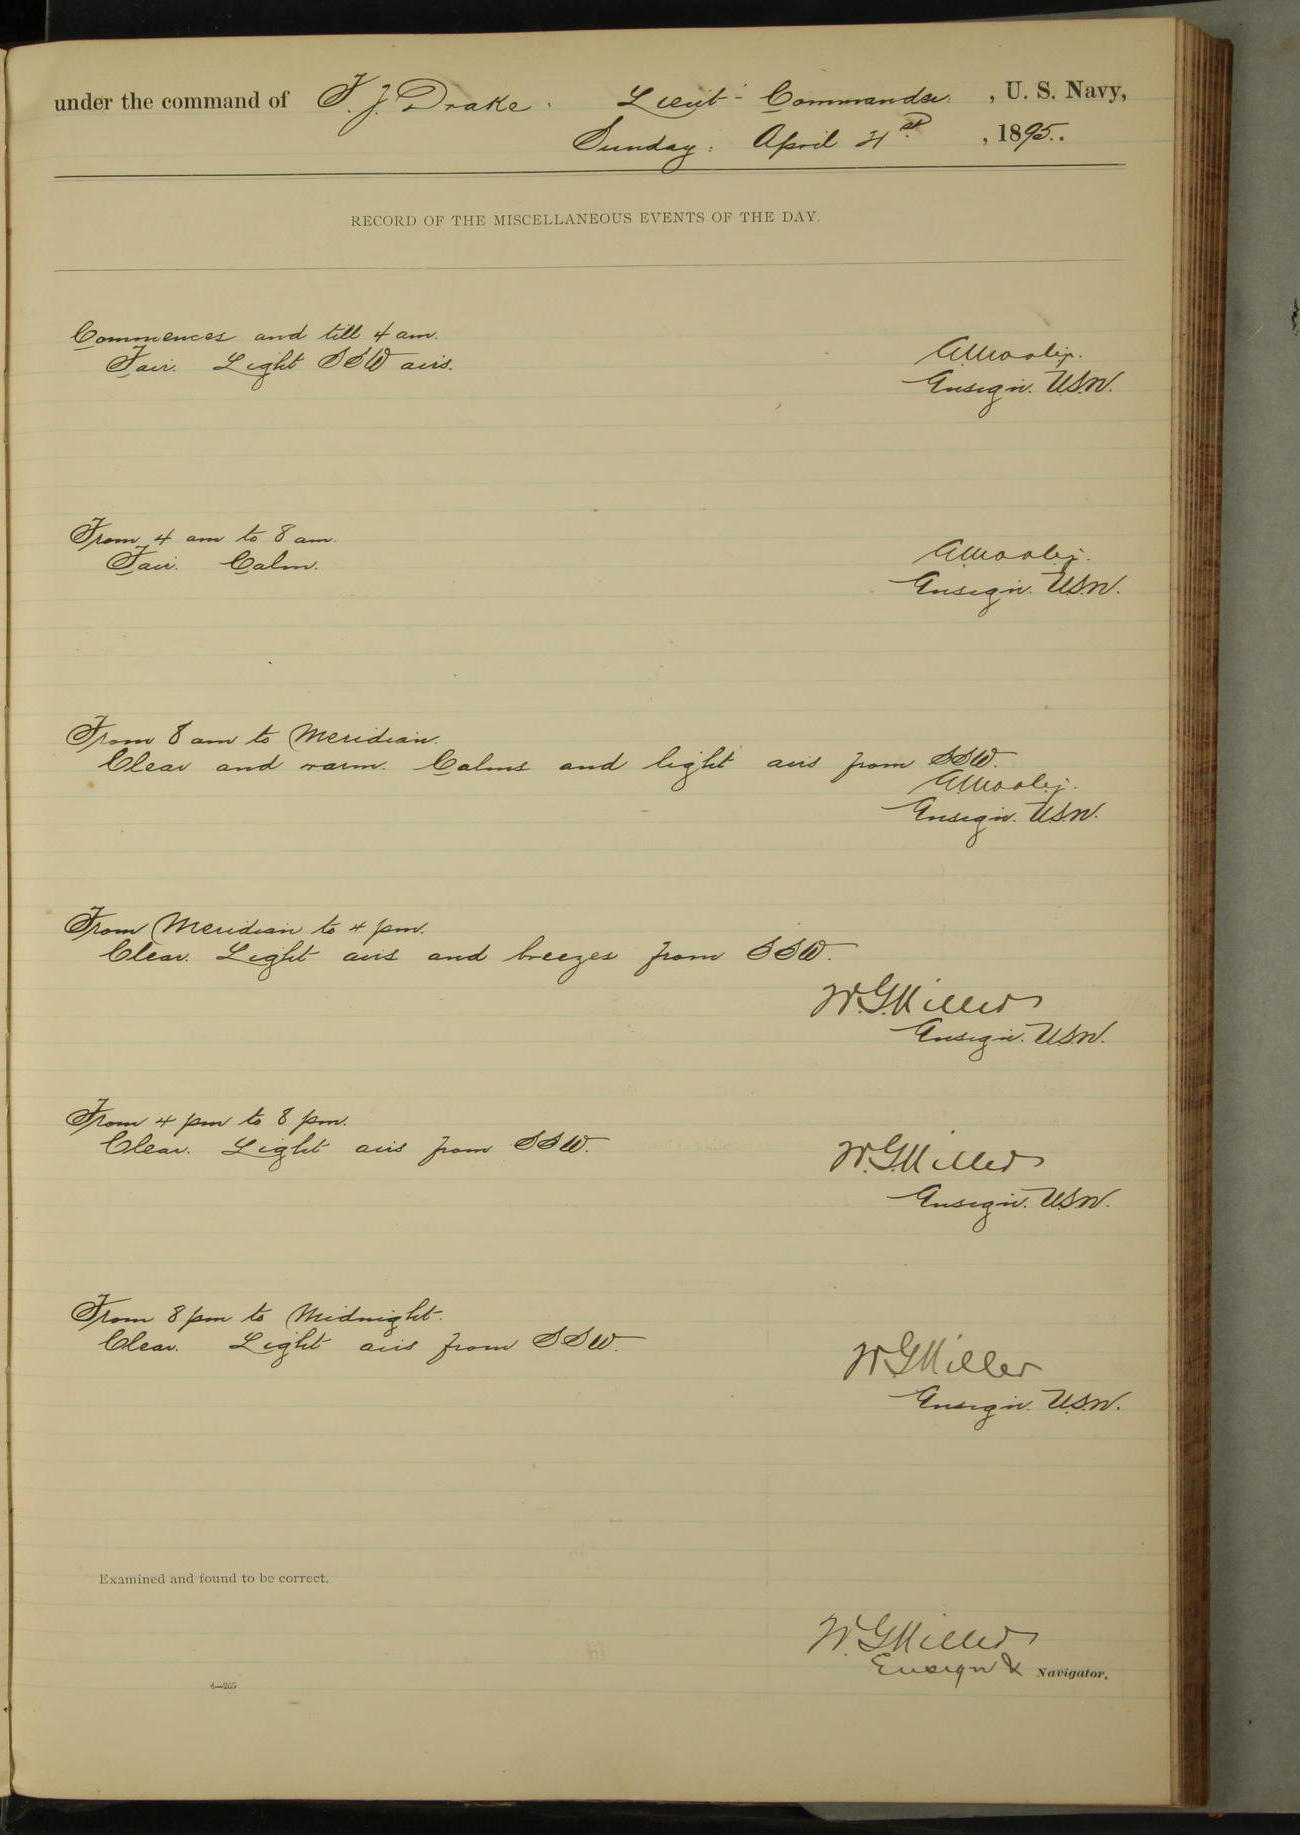 under the command of F. J. Drake. Lieut-Commander, U. S. Navy,
Sunday. April 21st, 1895.
RECORD OF THE MISCELLANEOUS EVENTS OF THE DAY.
Commences and till 4 am.
Fair. Light SSW airs.
Ensign. U.S.N.
From 4 am to 8 am.
Fair. Calm.
Ensign. U.S.N.
From 8 am to Meridian.
Clear and warm. Calms and light airs from SSW.
Ensign. U.S.N.
From Meridian to 4 pm.
Clear. Light airs and breezes from SSW.
W.G. Miller
Ensign. U.S.N.
From 4 pm to 8 pm.
Clear. Light airs from SSW.
W.G. Miller
Ensign. U.S.N.
From 8 pm to Midnight.
Clear. Light airs from SSW.
W.G. Miller
Ensign. U.S.N.
Examined and found to be correct.
W.G. Miller
Ensign & Navigator.